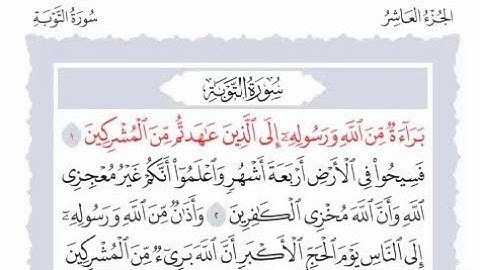 الجُزْءُ العَاشِرُ
سُورَةُ التَّوْبَةِ
سُورَةُ التَّوْبَةِ
بَرَآءَةٌ مِّنَ ٱللَّهِ وَرَسُولِهِۦٓ إِلَى ٱلَّذِينَ عَٰهَدتُّم مِّنَ ٱلْمُشْرِكِينَ ١
فَسِيحُوا۟ فِى ٱلْأَرْضِ أَرْبَعَةَ أَشْهُرٍ وَٱعْلَمُوٓا۟ أَنَّكُمْ غَيْرُ مُعْجِزِى
ٱللَّهِ وَأَنَّ ٱللَّهَ مُخْزِى ٱلْكَٰفِرِينَ ٢ وَأَذَٰنٌ مِّنَ ٱللَّهِ وَرَسُولِهِۦٓ
إِلَى ٱلنَّاسِ يَوْمَ ٱلْحَجِّ ٱلْأَكْبَرِ أَنَّ ٱللَّهَ بَرِىٓءٌ مِّنَ ٱلْمُشْرِكِينَ